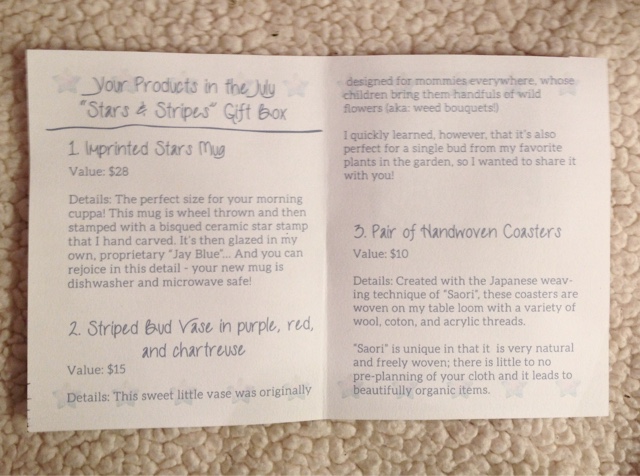 Your Products in the July
"Stars & Stripes" Gift Box
1. Imprinted Stars Mug
Value: $28
Details: The perfect size for your morning
cuppa! This mug is wheel thrown and then
stamped with a bisqued ceramic star stamp
that I hand carved. It's then glazed in my
own, proprietary "Jay Blue"... And you can
rejoice in this detail - your new mug is
dishwasher and microwave safe!
2. Striped Bud Vase in purple, red,
and chartreuse
Value: $15
Details: This sweet little vase was originally
designed for mommies everywhere, whose
children bring them handfuls of wild
flowers (aka: weed bouquets!)
I quickly learned, however, that it's also
perfect for a single bud from my favorite
plants in the garden, so I wanted to share it
with you!
3. Pair of Handwoven Coasters
Value: $10
Details: Created with the Japanese weav-
ing technique of "Saori", these coasters are
woven on my table loom with a variety of
wool, coton, and acrylic threads.
"Saori" is unique in that it is very natural
and freely woven; there is little to no
pre-planning of your cloth and it leads to
beautifully organic items.